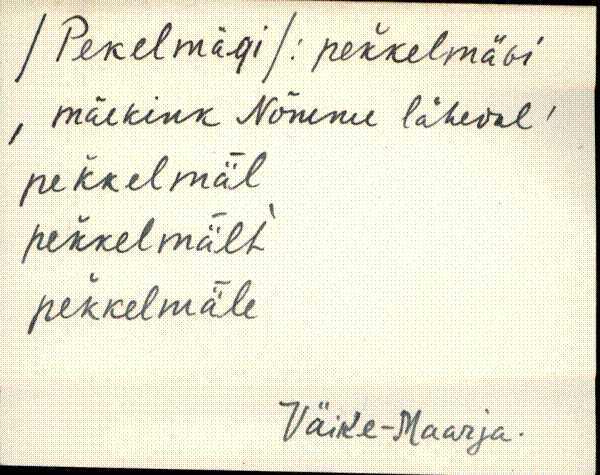 /Pekelmägi/: pek̆kelmäGi
, mäekink Nõmme lähedal'
pek̆kelmǟl
pek̆kelmǟlt̀
pek̆kelmǟle
Väike-Maarja.